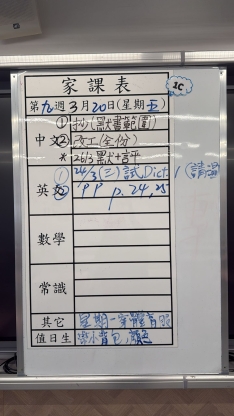 家課表
1C
第九週3月20日(星期五)
中文
① 抄(默書範圍)
② 改工(全份)
* 26/3 默+
英文
① 24/3 (三) 試 Dict. 1 (請
② PP p.24, 25
數學
常識
其它
星期一穿體育服
值日生